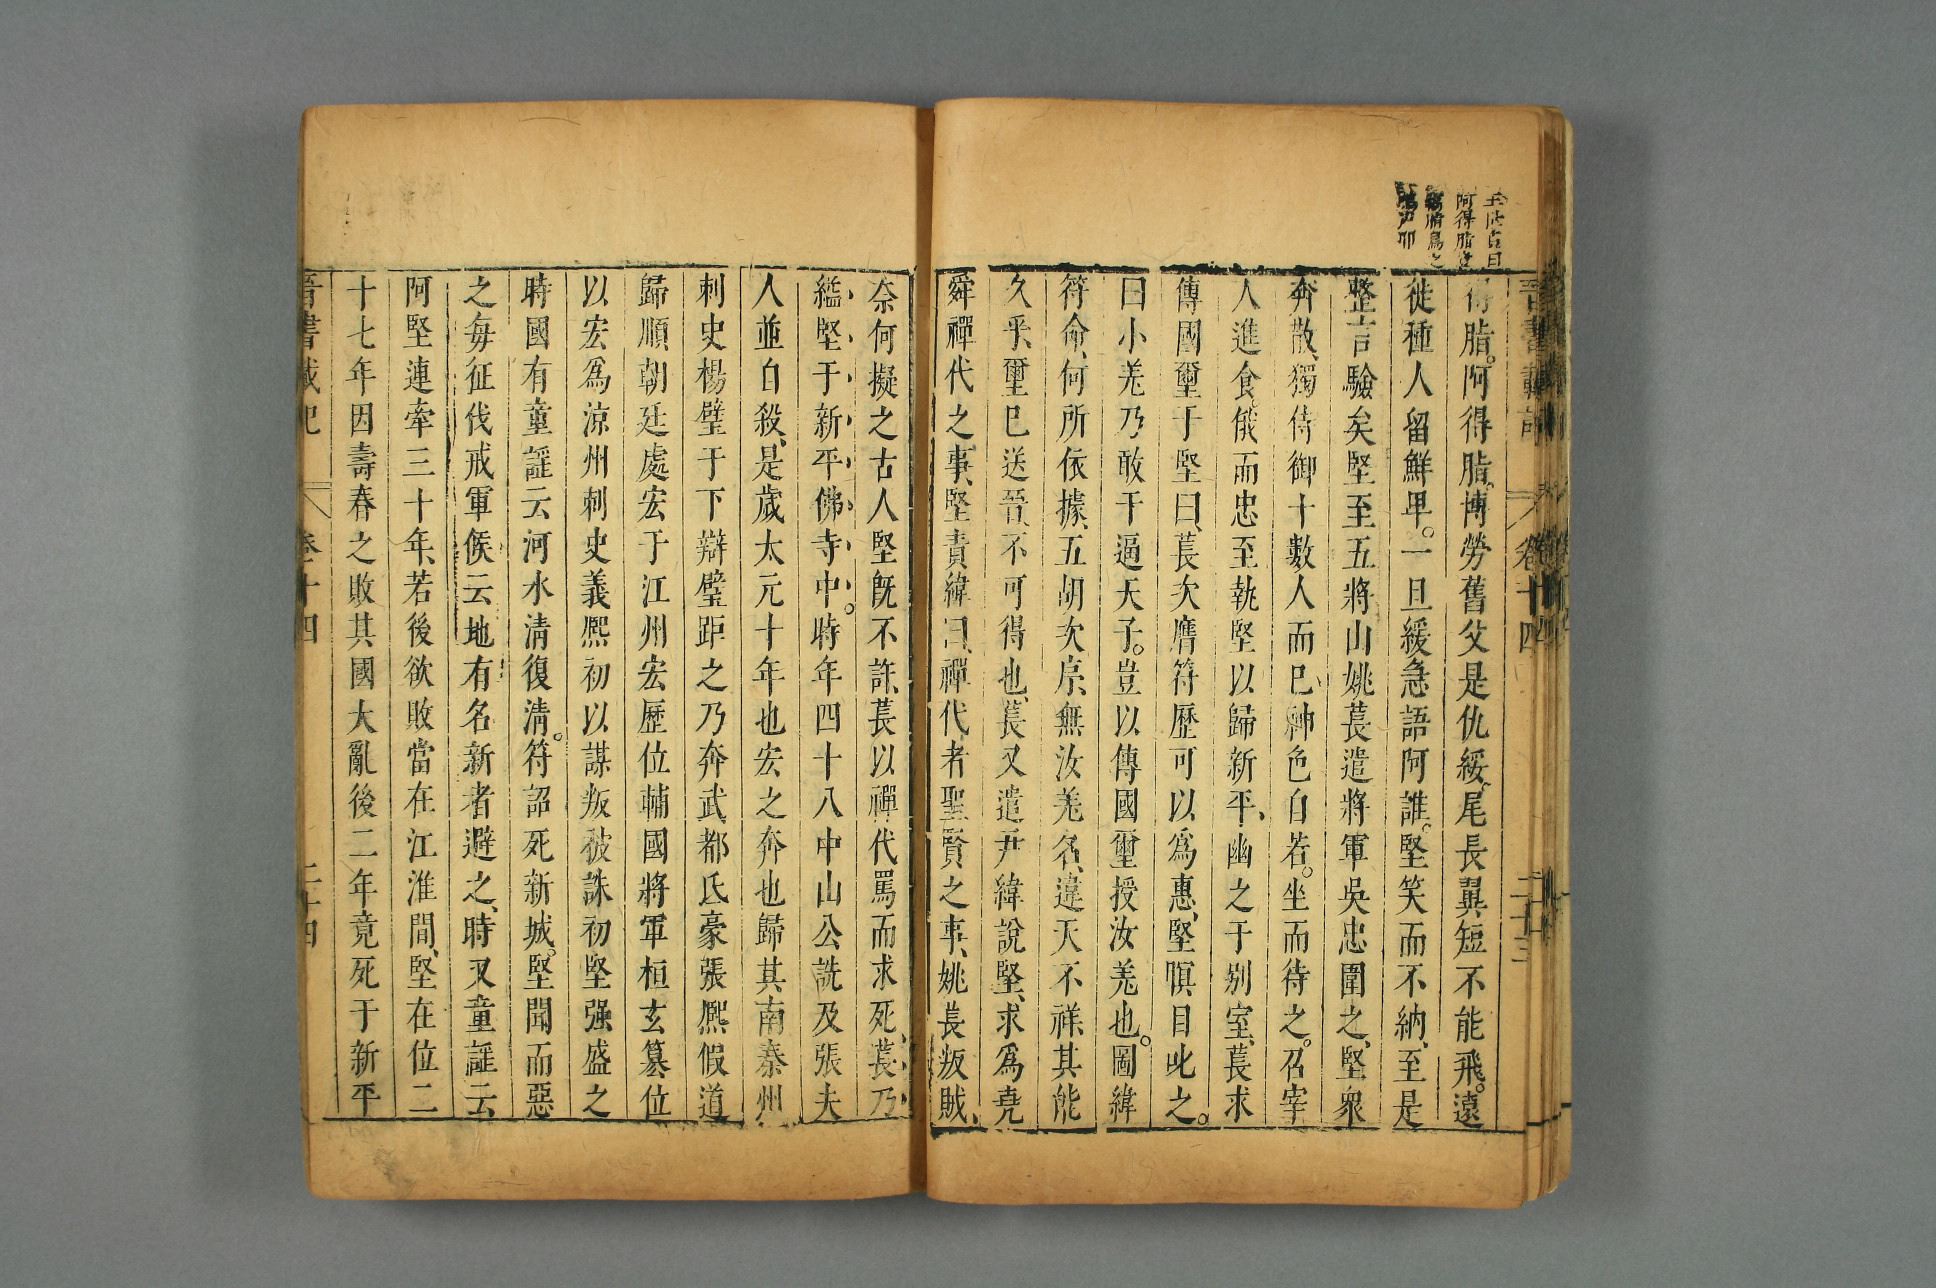 阿得脂
得脂。阿得脂。博勞舊父是仇綏。尾長翼短不能飛。遠
徙種人留鮮卑。一旦緩急語阿誰。堅笑而不納、至是
整言驗矣堅至五將山姚萇遣將軍吳忠圍之、堅衆
奔散、獨侍御十數人而巳、神色自若。坐而待之。召宰
人進食。俄而忠至執堅以歸新平、幽之于別室、萇求
傳國璽于堅曰、萇次膺符歷可以爲惠、堅瞋目叱之。
曰小羌乃敢干逼天子。豈以傳國璽授汝羌也。圖緯
符命、何所依據、五胡次序、無汝羌名、違天不祥、其能
久乎、璽巳送晉、不可得也、萇又遣尹緯說堅、求爲堯
舜禪代之事、堅責緯曰、禪代者聖賢之事、姚萇叛賊、
晉書載記 卷十四 二十三
奈何擬之古人堅旣不許、萇以禪代罵而求死、萇乃
縊堅于新平佛寺中。時年四十八中山公詵及張夫
人並自殺、是歲太元十年也宏之奔也歸其南秦州
刺史楊璧于下辯璧距之乃奔武都氐豪張熙假道
歸順朝廷處宏于江州宏歷位輔國將軍桓玄篡位
以宏爲涼州刺史義熙初以謀叛被誅初堅强盛之
時國有童謡云河水清復清。符詔死新城。堅聞而惡
之每征伐戒軍候云地有名新者避之、時又童謡云
阿堅連牽三十年、若後欲敗當在江淮間、堅在位二
十七年因壽春之敗其國大亂後二年竟死于新平
晉書載記 卷十四 二十四